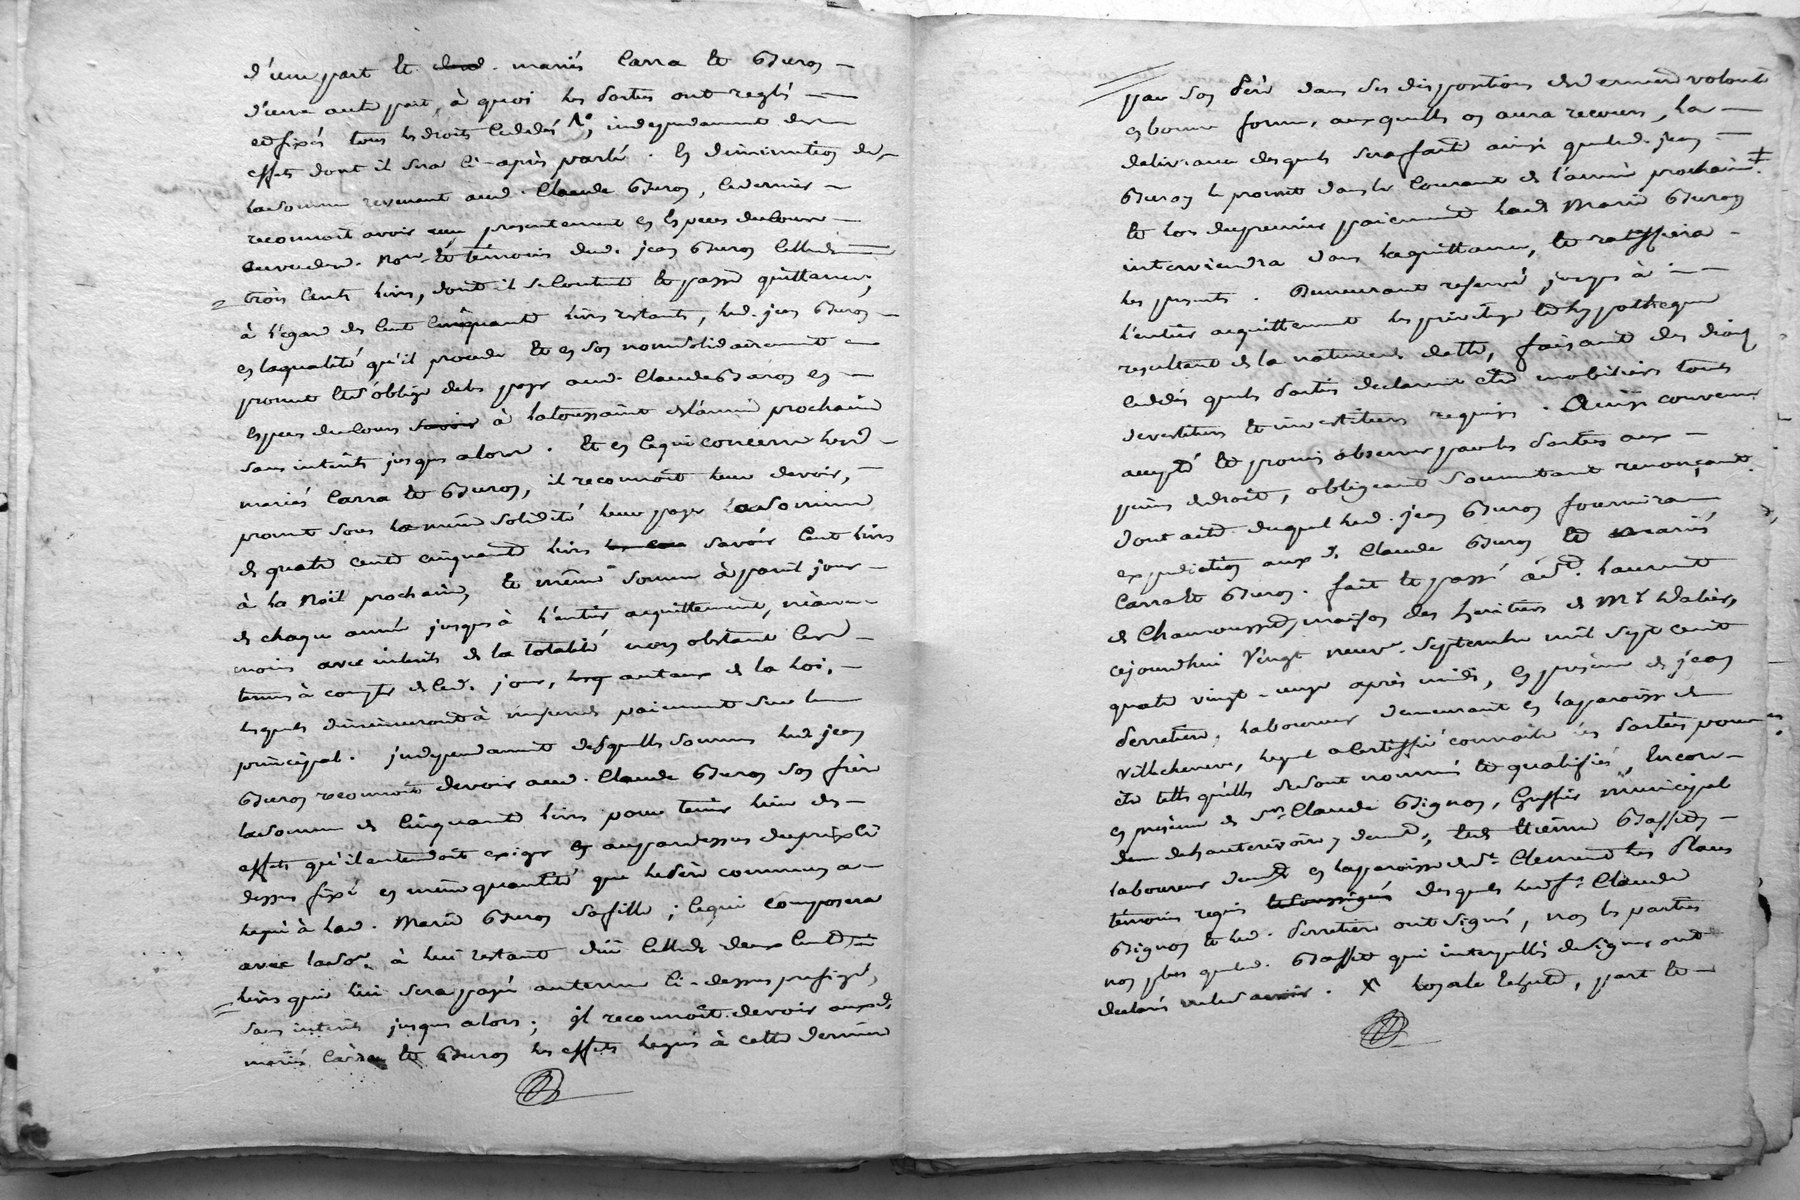 d'une part et mariés Carra et Buron
d'une autre part, à quoi les parties ont reglé
et fixés tous les droits cedés, independament des
effets dont il sera ci-après parlé. En diminution de
la somme revenant aud. Claude Buron, ce dernier
reconnoit avoir reçu presentement en especes du cours
au vu des d. Nore. et témoins dud. jean Buron celle de
trois cents livres, dont il se contente et passe quittance;
à l'egard des cent cinquante livres restants, led. jean Buron
en la qualité qu'il procede et en son nom solidairement
promet et s'oblige de les payer aud. Claude Buron en
especes du cours à la toussaint de l'année prochaine
sans intérêts jusques alors. Et en ce qui concerne lesd.
mariés Carra et Buron, il reconnoit leur devoir,
promet sous la même solidité leur payer la somme
de quatre cents cinquante livres savoir cent livres
à la Noël prochaine, et même somme à pareil jour
de chaque année jusques à l'entier acquittement, néan-
moins avec intérêts de la totalité nonobstant lesd.
termes à compter de ced. jour, au taux de la loi,
lesquels diminueront à mesure de paiement sur le
principal. jndependament desquelles sommes led. jean
Buron reconnoit devoir aud. Claude Buron son frère
la somme de cinquante livres pour tenir lieu des
effets qu'il entendoit exiger au par dessus du prix ci
dessus fixé en même quantité que le père commun a
legué à lad. Marie Buron sa fille; ce qui composera
avec la some. à lui restant düe celle de deux cents
livres qui lui sera payée au terme ci-dessus prefigé,
sans intérêts jusques alors; jl reconnoit devoir auxd.
mariés Carra et Buron les effets legués à cette derniere
par son père dans ses dispositions de derniere volonté
en bonne forme, auxquelles on aura recours, la
delivrance desquels sera faite ainsi que led. jean
Buron le promet dans le courant de l'année prochaine ‡
et lors du premier paiement lad. Marie Buron
interviendra dans la quittance, et ratiffiera
les presentes. Demeurant reservé jusques à
l'entier acquittement les privilege et hypotheque
resultant de la nature de dette, faisant des droits
cedés que les parties declarent être mobiliers toutes
devestitures et investitures requises. Ainsi convenu
accepté et promis observer par les parties aux
peines de droit, obligeant soumettant renonçant
dont acte duquel led. jean Buron fournira
expedition aux d. Claude Buron et mariés
Carra et Buron. fait et passé à St. Laurent
de Chamousset, maison des heritiers de Mr.
cejourd'hui vingt neuve. Septembre mil sept cent
quatre vingt-onze après midi, en presence de jean
Perretiere, laboureur demeurant en la paroisse de
Villecheneve, lequel a certiffié connoitre les parties pour
être telles qu'elles se sont nommés et qualifiés, encore
en presence de Sr. Claude Bignon, Greffier municipal
de hauterivoire y demt., et de Etienne Bassett
laboureur demt. en la paroisse de St. Clement les places
témoins requis desquels led. Sr. Claude
Bignon et led. Perretiere ont signé, non les parties
non plus que led. Bassett qui interpellés de signer ont
declaré ne le savoir. X part et